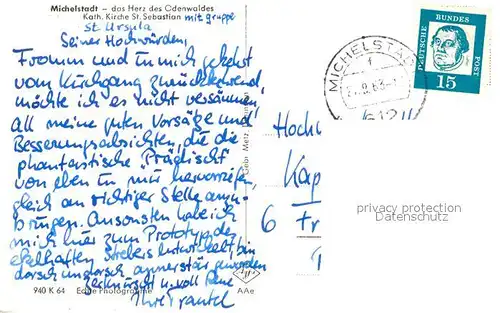 Michelstadt – das Herz des Odenwaldes
Kath. Kirche St. Sebastian mit gruppe
St. Ursula
Seiner Hochwürden,
Fromm und in mich gekehrt
vom Kirchgang zurückkehrend,
möchte ich es nicht versäumen,
All meine guten Vorsätze und
Besserungsabsichten, die die
phantastische Predigt
von eben in mir hervorriefen,
gleich an richtiger Stelle anzu-
bringen. Ansonsten habe ich
mich hier zum Prototyp des
ekelhaften Strebers entwickelt, bin
geworden
u. voll Reue
Ihre Trautel
940 K 64 Echte Photographie AAe
Gebr. Metz
MICHELSTA
DEUTSCHE BUNDES POST
15
Hoch
Kap
6
privacy protection
Datenschutz